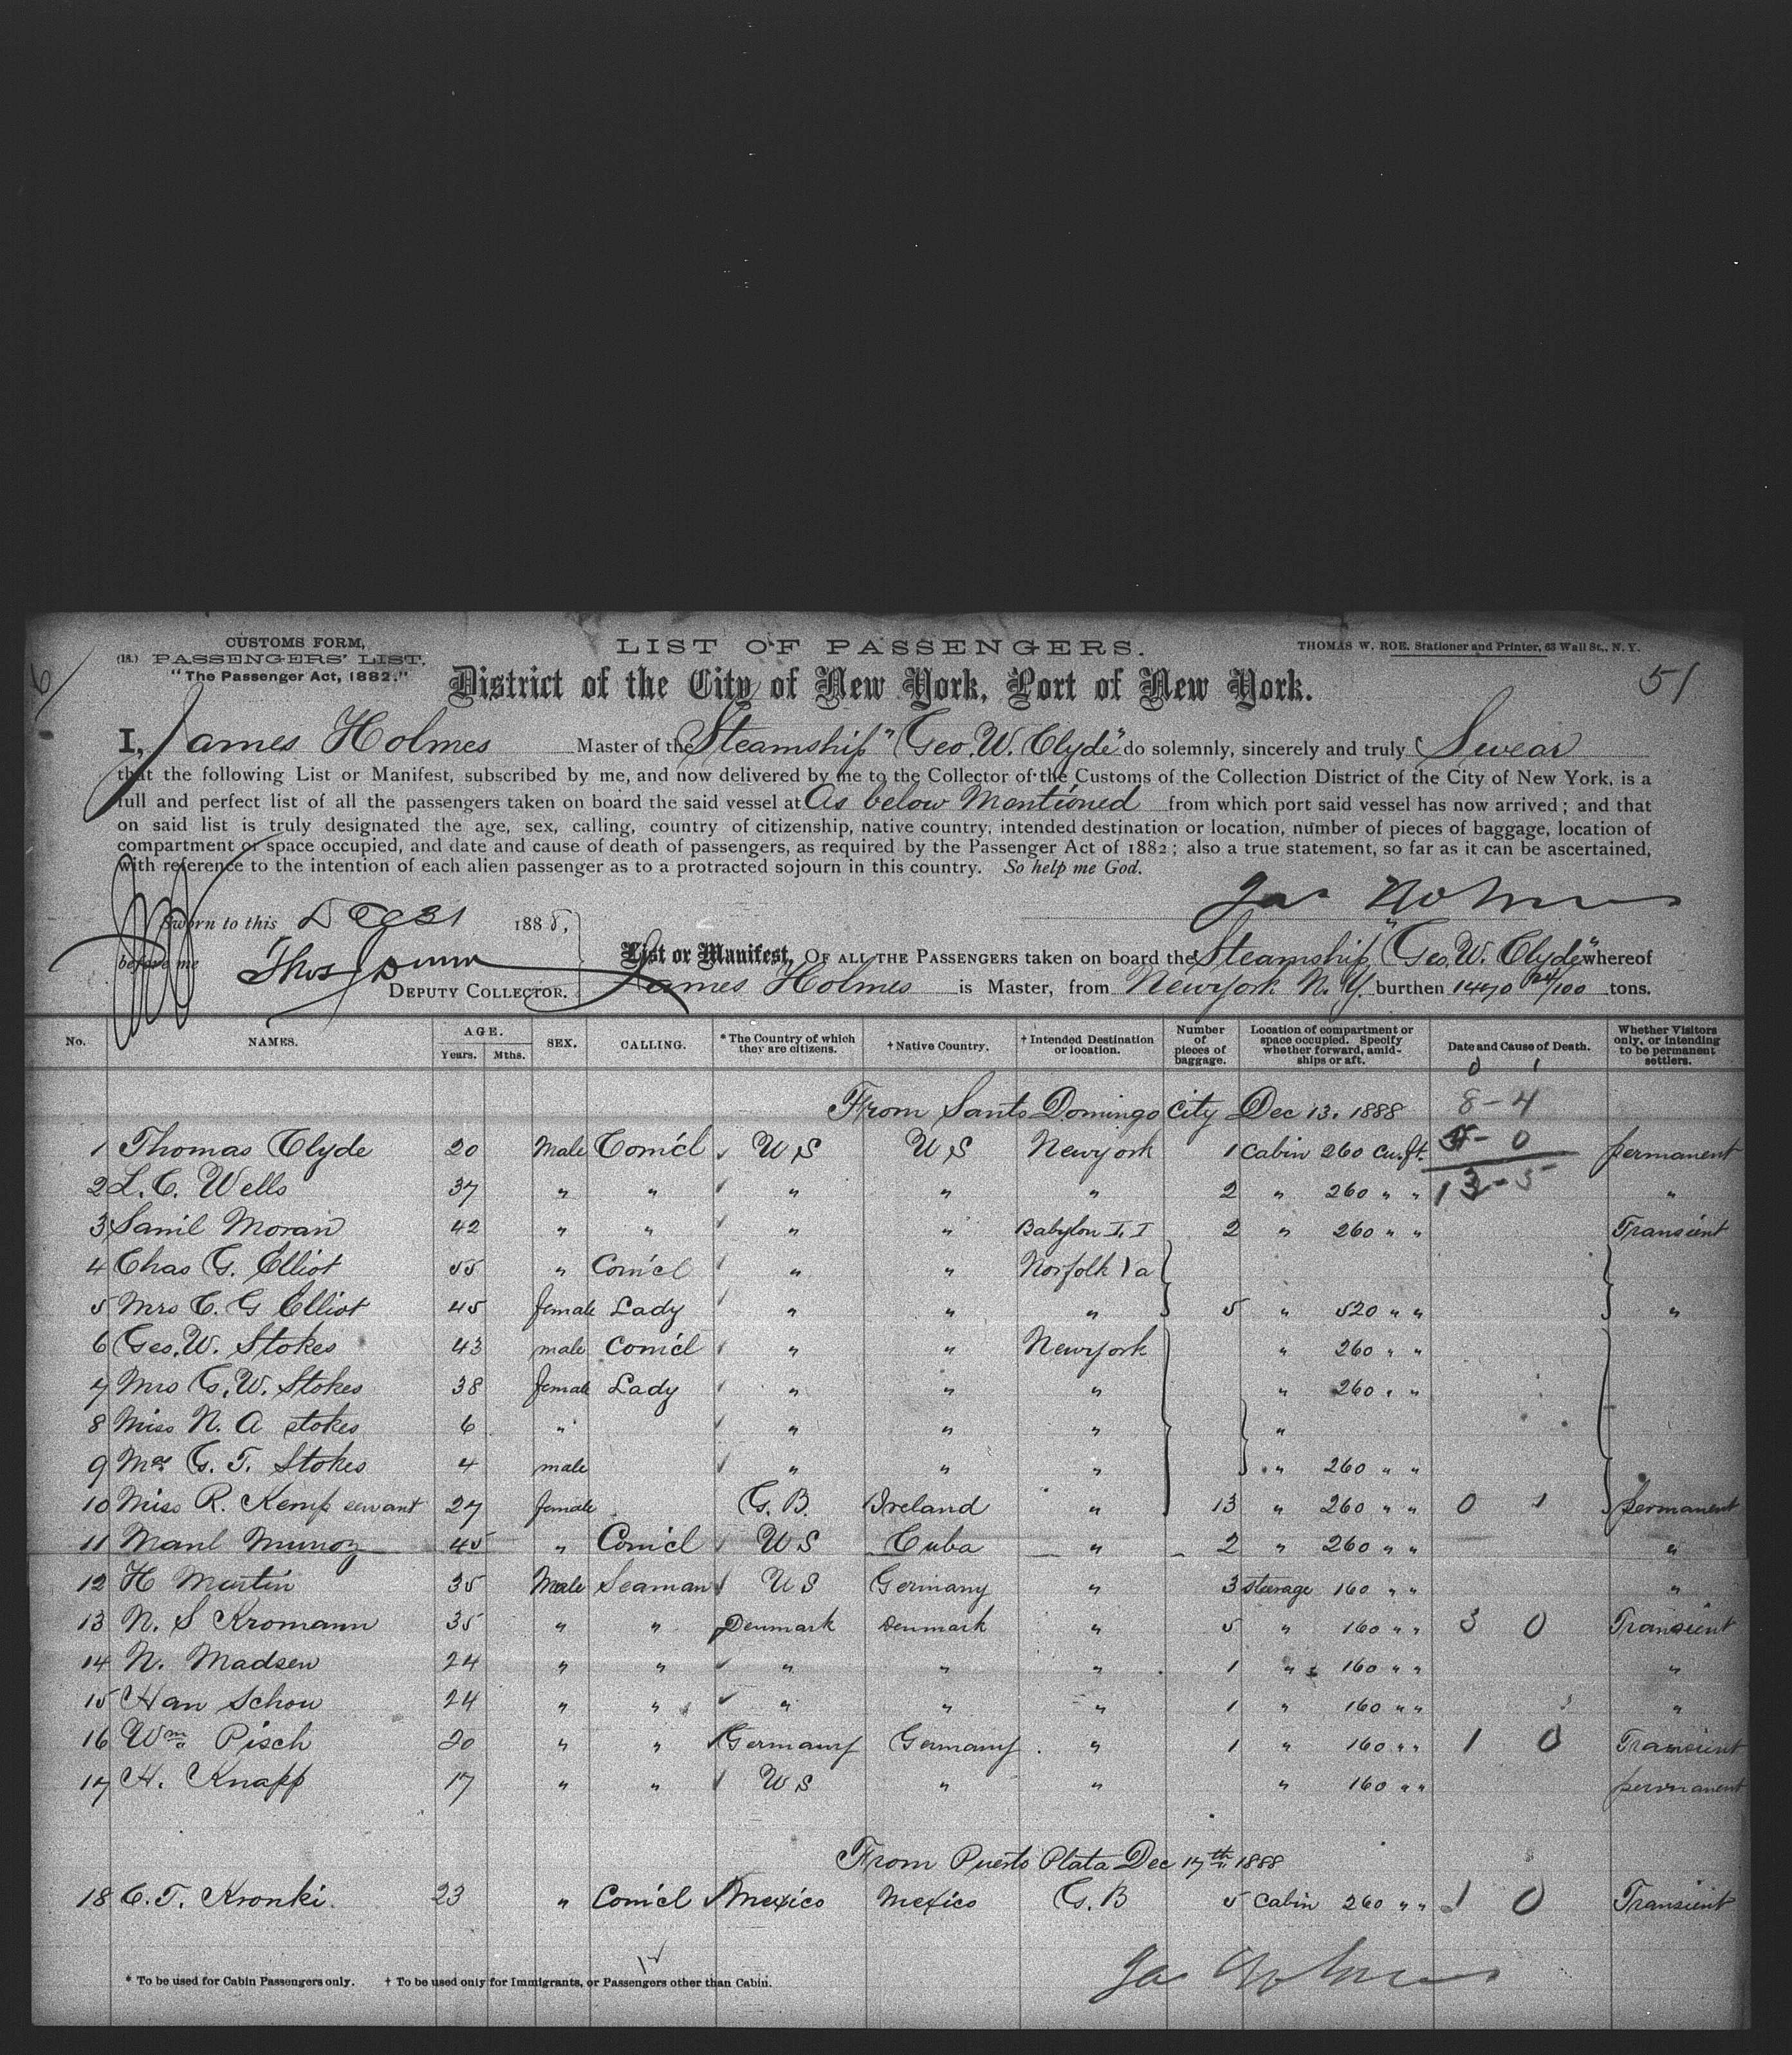 CUSTOMS FORM,
(18.) PASSENGERS' LIST.
"The Passenger Act, 1882."
LIST OF PASSENGERS.
THOMAS W. ROE, Stationer and Printer, 63 Wall St., N. Y.
District of the City of New York, Port of New York.
51
I, James Holmes Master of the Steamship "Geo. W. Clyde" do solemnly, sincerely and truly Swear
that the following List or Manifest, subscribed by me, and now delivered by me to the Collector of the Customs of the Collection District of the City of New York, is a
full and perfect list of all the passengers taken on board the said vessel at As below Mentioned from which port said vessel has now arrived; and that
on said list is truly designated the age, sex, calling, country of citizenship, native country, intended destination or location, number of pieces of baggage, location of
compartment or space occupied, and date and cause of death of passengers, as required by the Passenger Act of 1882; also a true statement, so far as it can be ascertained,
with reference to the intention of each alien passenger as to a protracted sojourn in this country. So help me God.
Jas Holmes
Sworn to this Dec 31 1888,
before me Thos J Dunn
DEPUTY COLLECTOR.
List or Manifest, OF ALL THE PASSENGERS taken on board the Steamship "Geo. W. Clyde" whereof
James Holmes is Master, from Newyork N.Y. burthen 1470 24/100 tons.
No. NAMES. AGE. Years. Mths. SEX. CALLING. * The Country of which they are citizens. † Native Country. † Intended Destination or location. Number of pieces of baggage. Location of compartment or space occupied. Specify whether forward, amidships or aft. Date and Cause of Death. Whether Visitors only, or intending to be permanent settlers.
0 1
From Santo Domingo City Dec 13. 1888 8 - 4
1 Thomas Clyde 20 Male Com'cl U S U S Newyork 1 Cabin 260 cu. ft. 5 - 0 permanent
2 L. C. Wells 37 " " " " " 2 " 260 " " 13 - 5 "
3 Saml Moran 42 " " " " Babylon L, I 2 " 260 " " Transient
4 Chas G. Elliot 55 " Com'cl " " Norfolk Va
5 Mrs C. G Elliot 45 female Lady " " " 5 " 520 " " "
6 Geo. W. Stokes 43 male Com'cl " " Newyork " 260 " "
7 Mrs G. W. Stokes 38 female Lady " " " " 260 " "
8 Miss N. A stokes 6 " " " " "
9 Mas G. T. Stokes 4 male " " " " 260 " "
10 Miss R. Kemp servant 27 female G. B. Ireland " 13 " 260 " " 0 1 permanent
11 Manl Munoz 45 " Com'cl U S Cuba " 2 " 260 " " "
12 H Martin 35 Male Seaman U S Germany " 3 steerage 160 " " "
13 N. S Kromann 35 " " Denmark Denmark " 5 " 160 " " 3 0 Transient
14 N. Madsen 24 " " " " " 1 " 160 " " "
15 Han Schou 24 " " " " " 1 " 160 " " "
16 Wm Pisch 20 " " Germany Germany " 1 " 160 " " 1 0 Transient
17 H. Knapp 17 " " U S " " " 160 " " permanent
From Puerto Plata Dec 17th 1888
18 C. T. Kronki. 23 " Com'cl Mexico Mexico G. B 5 Cabin 260 " " 1 0 Transient
* To be used for Cabin Passengers only. † To be used only for Immigrants, or Passengers other than Cabin.
Jas Holmes